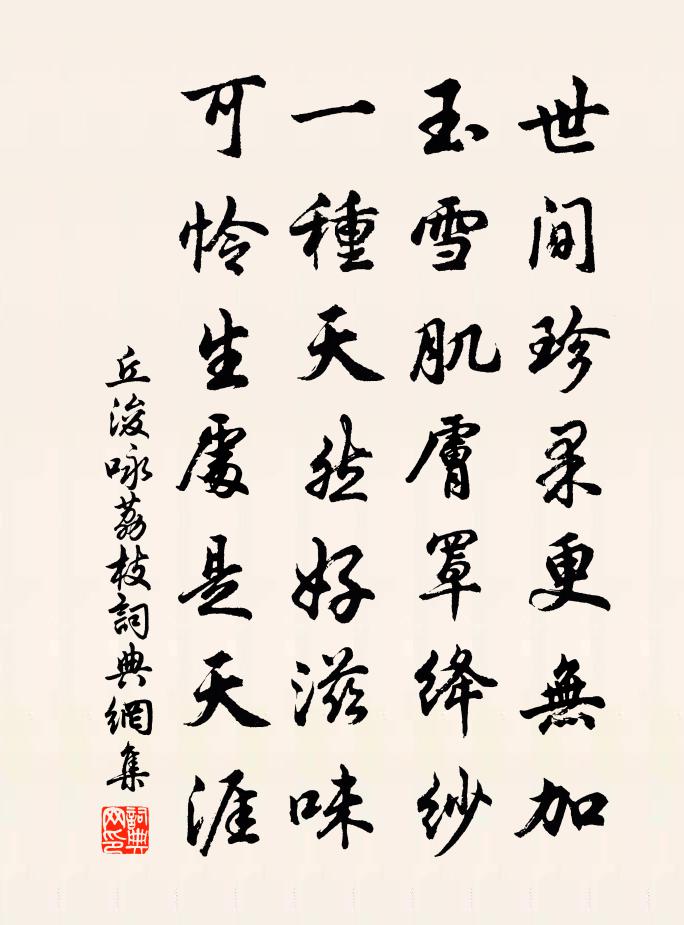 世間珍果更無加
玉雪肌膚罩絳紗
一種天然好滋味
可憐生處是天涯
丘濬咏荔枝詞典網集
詞典網印